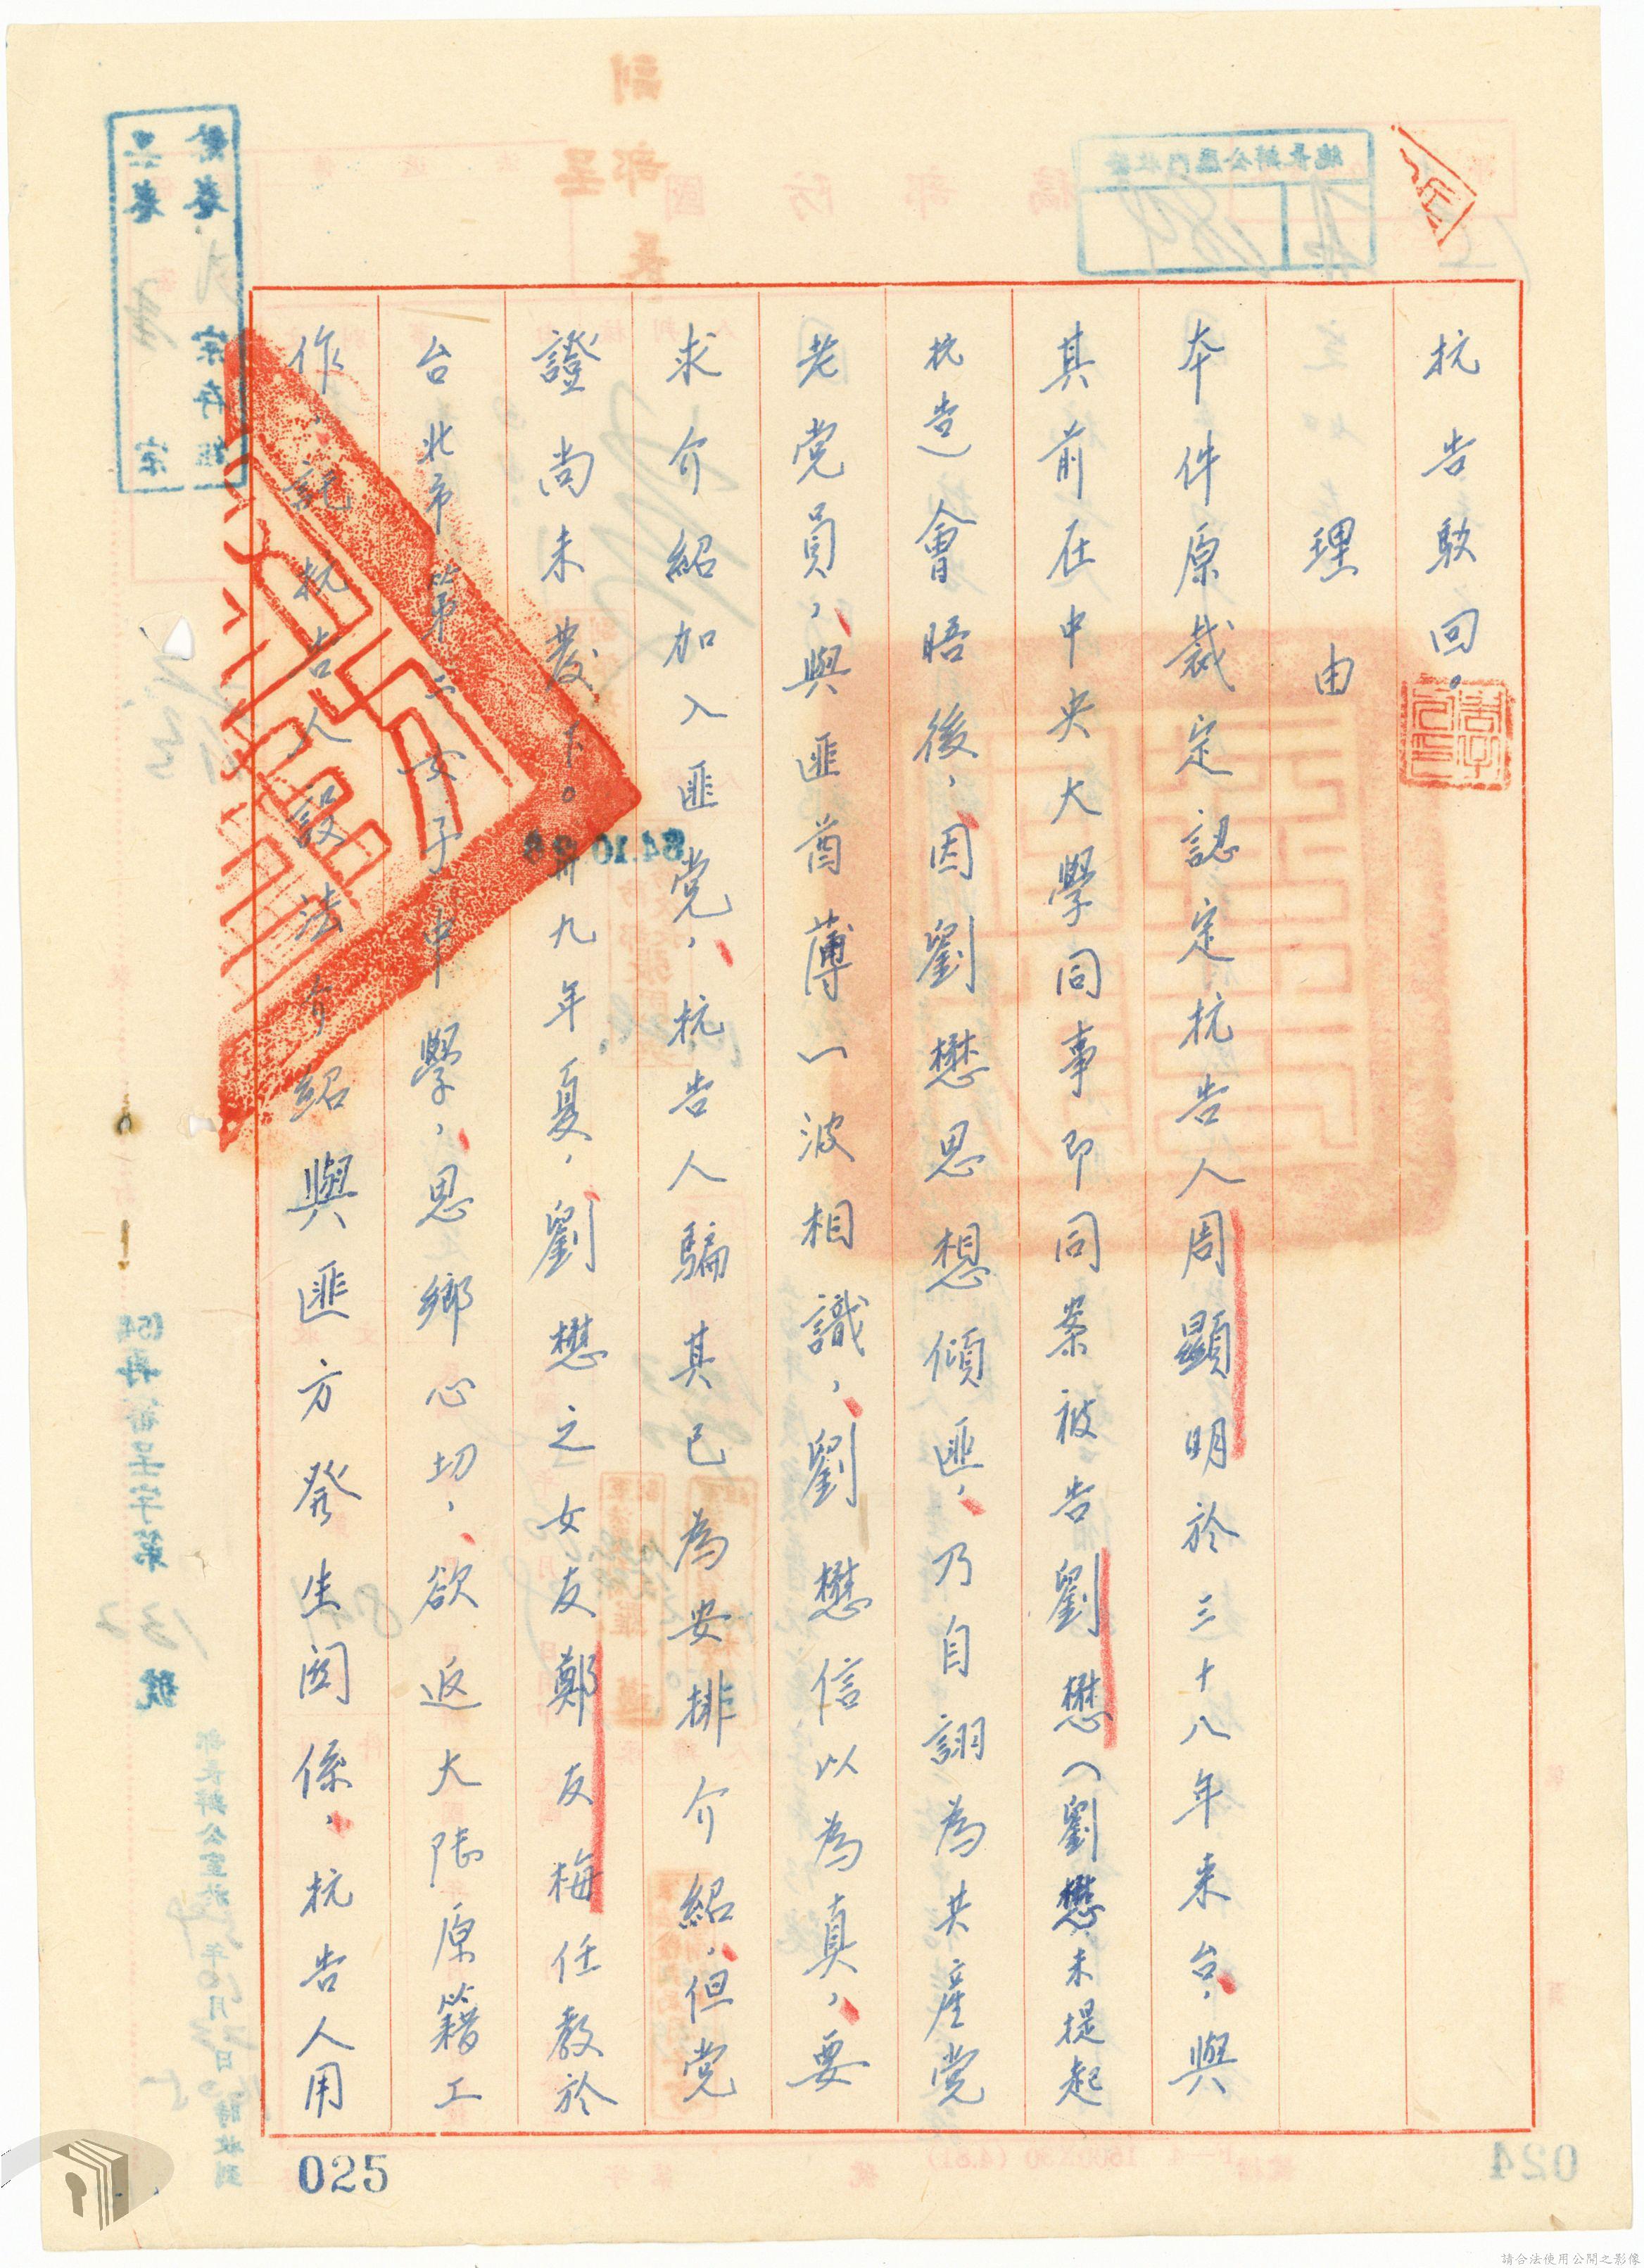 抗告駁回。
理由
本件原裁定認定抗告人周顯明於三十八年來台，與
其前在中央大學同事即同案被告劉懋（劉懋未提起
抗告）會晤後，因劉懋思想傾匪，乃自詡為共產党
老党員，與匪酋薄一波相識，劉懋信以為真，要
求介紹加入匪党，抗告人騙其已為安排介紹，但党
證尚未發下。卅九年夏，劉懋之女友鄭友梅任教於
台北市第二女子中學，思鄉心切，欲返大陸原籍工
作，託抗告人設法介紹與匪方發生関係，抗告人用
025
024
請合法使用公開之影像